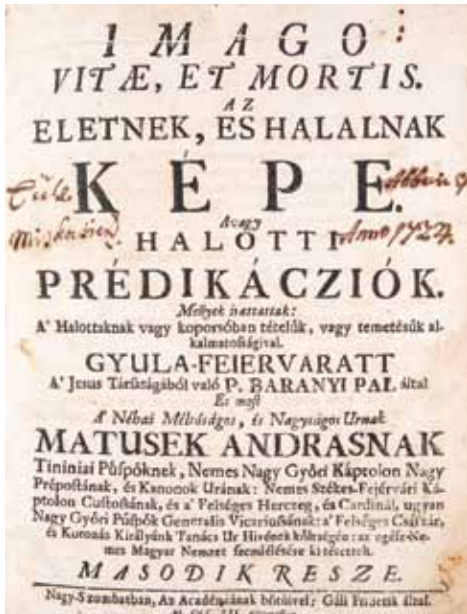 IMAGO
VITÆ, ET MORTIS.
AZ
ELETNEK, ES HALALNAK
KÉPE.
Avagy
HALOTTI Anno 1724
PRÉDIKÁCZIÓK.
Mellyek irattattak:
A' Halottaknak vagy koporsóban tételük, vagy temetésük al-
kalmatosságival.
GYULA-FEIERVARATT
A' Jesus Társaságából való P. BARANYI PAL által
És most
A' Néhai Méltóságos, és Nagyságos Urnak
MATUSEK ANDRASNAK
Tininiai Püspöknek, Nemes Nagy Győri Káptolon Nagy
Prépostának, és Kanonok Urának: Nemes Székes-Fejérvári Ká-
ptolon Custosának, és a' Felséges Herczeg, és Cardinál, ugyan
Nagy Győri Püspök Generalis Vicariusának: a' Felséges Császár,
és Koronás Királyunk Tanács Ur Hivének költségén: az egész Ne-
mes Magyar Nemzet
MASODIK RESZE.
Nagy-Szombatban, Az Académiának bötüivel: Gáli Friderik által.